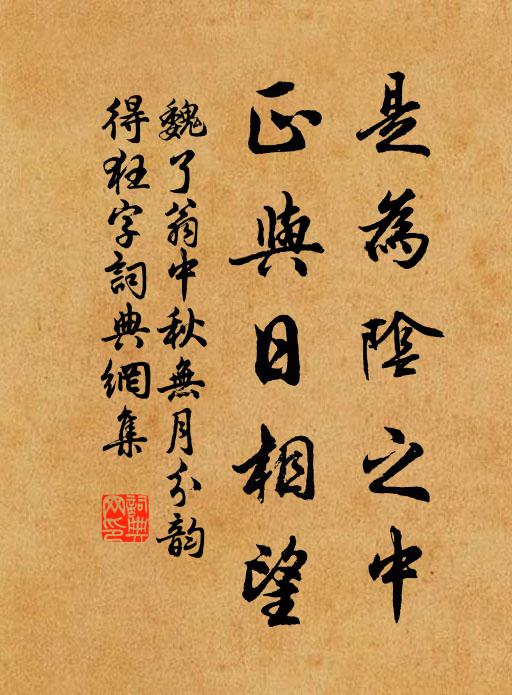 是為陰之中
正與日相望
魏了翁中秋無月分韵
得狂字詞典網集
詞典
网印